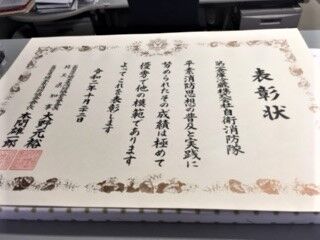 表彰状
第一倉庫株式会社自衛消防隊
平素消防思想の普及と実践に
努められたその成績は極めて
優秀で他の模範であります
よってこれを表彰します
令和二年十月二十三日
大野元裕